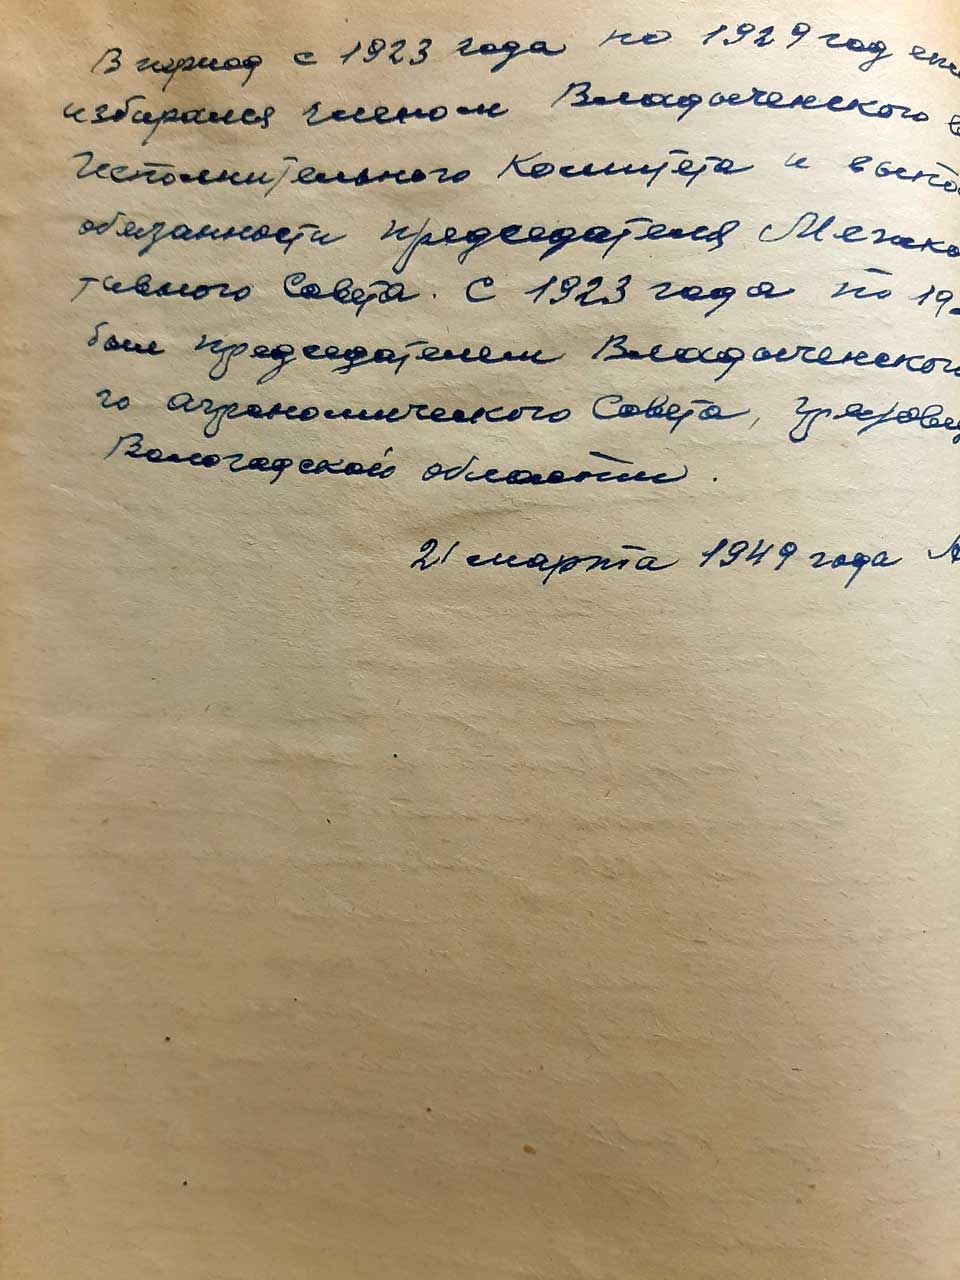 В период с 1923 года по 1929 год еже
избирался членом Владыченского в
Исполнительного Комитета и выпо
обязанности председателя
тивного Совета. С 1923 года по 19
был председателем Владыченского
го агрономического Совета, Грязовец
Вологодской области.
21 марта 1949 года А